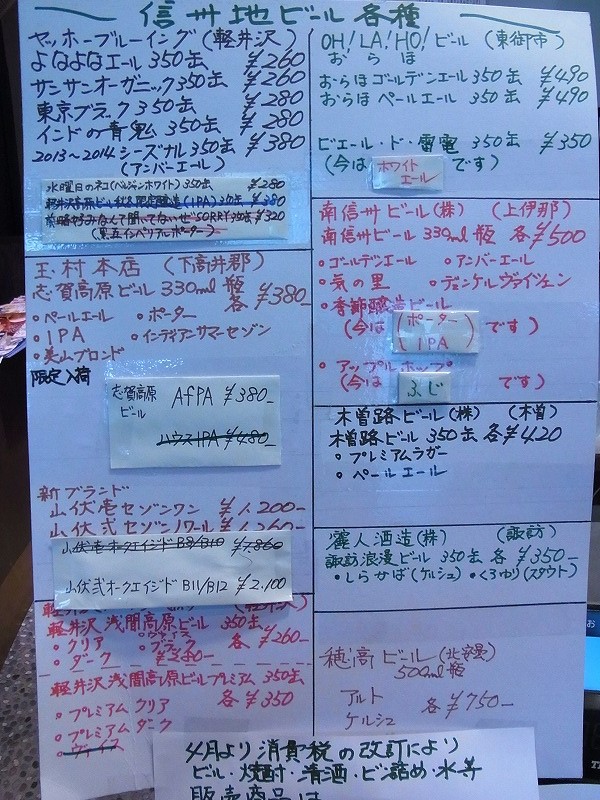 信州地ビール各種
ヤッホーブルーイング(軽井沢)
よなよなエール 350缶 ¥260
サンサンオーガニック350缶 ¥260
東京ブラック 350缶 ¥280
インドの青鬼 350缶 ¥280
2013~2014シーズナル350缶 ¥380
(アンバーエール)
水曜日のネコ(ベルジャンホワイト)350缶 ¥280
軽井沢高原ビール 限定醸造(IPA)350缶 ¥380
前略好みなんて聞いてないぜSORRY 350缶 ¥320
玉村本店 (下高井郡)
志賀高原ビール 330ml瓶
各¥380
・ペールエール ・ポーター
・IPA ・インディアンサマーセゾン
・美山ブロンド
限定入荷
志賀高原
ビール AfPA ¥380-
ハウスIPA ¥480-
新ブランド
山伏壱セゾンワン ¥1,200-
山伏弐セゾンノワール ¥1,260-
山伏壱オークエイジド B8/B10 ¥1,860
山伏弐オークエイジド B11/B12 ¥2,100
軽井沢浅間高原ビール 350缶
・クリア ・ブラック 各¥260-
・ダーク
軽井沢浅間高原ビールプレミアム 350缶
・プレミアム クリア 各¥350
・プレミアム ダーク
・ヴァイス
OH!LA!HO!ビール (東御市)
おらほ
おらほゴールデンエール 350缶 ¥490
おらほペールエール 350缶 ¥490
ビエール・ド・雷電 350缶 ¥350
(今は ホワイトエール です)
南信州ビール(株) (上伊那)
南信州ビール 330ml瓶 各¥500
・ゴールデンエール ・アンバーエール
・気の里 ・デュンケルヴァイツェン
・季節醸造ビール
(今は (ポーター
IPA) です)
・アップルホップ
(今は ふじ です)
木曽路ビール(株) (木曽)
木曽路ビール 350缶 各¥420
・プレミアムラガー
・ペールエール
麗人酒造(株) (諏訪)
諏訪浪漫ビール 350缶 各¥350-
・しらかば(ケルシュ) ・くろゆり(スタウト)
穂高ビール(北安曇)
500ml瓶
アルト
ケルシュ 各¥750-
4月より消費税の改訂により
ビール・焼酎・清酒・ビン詰め・水等
販売商品は